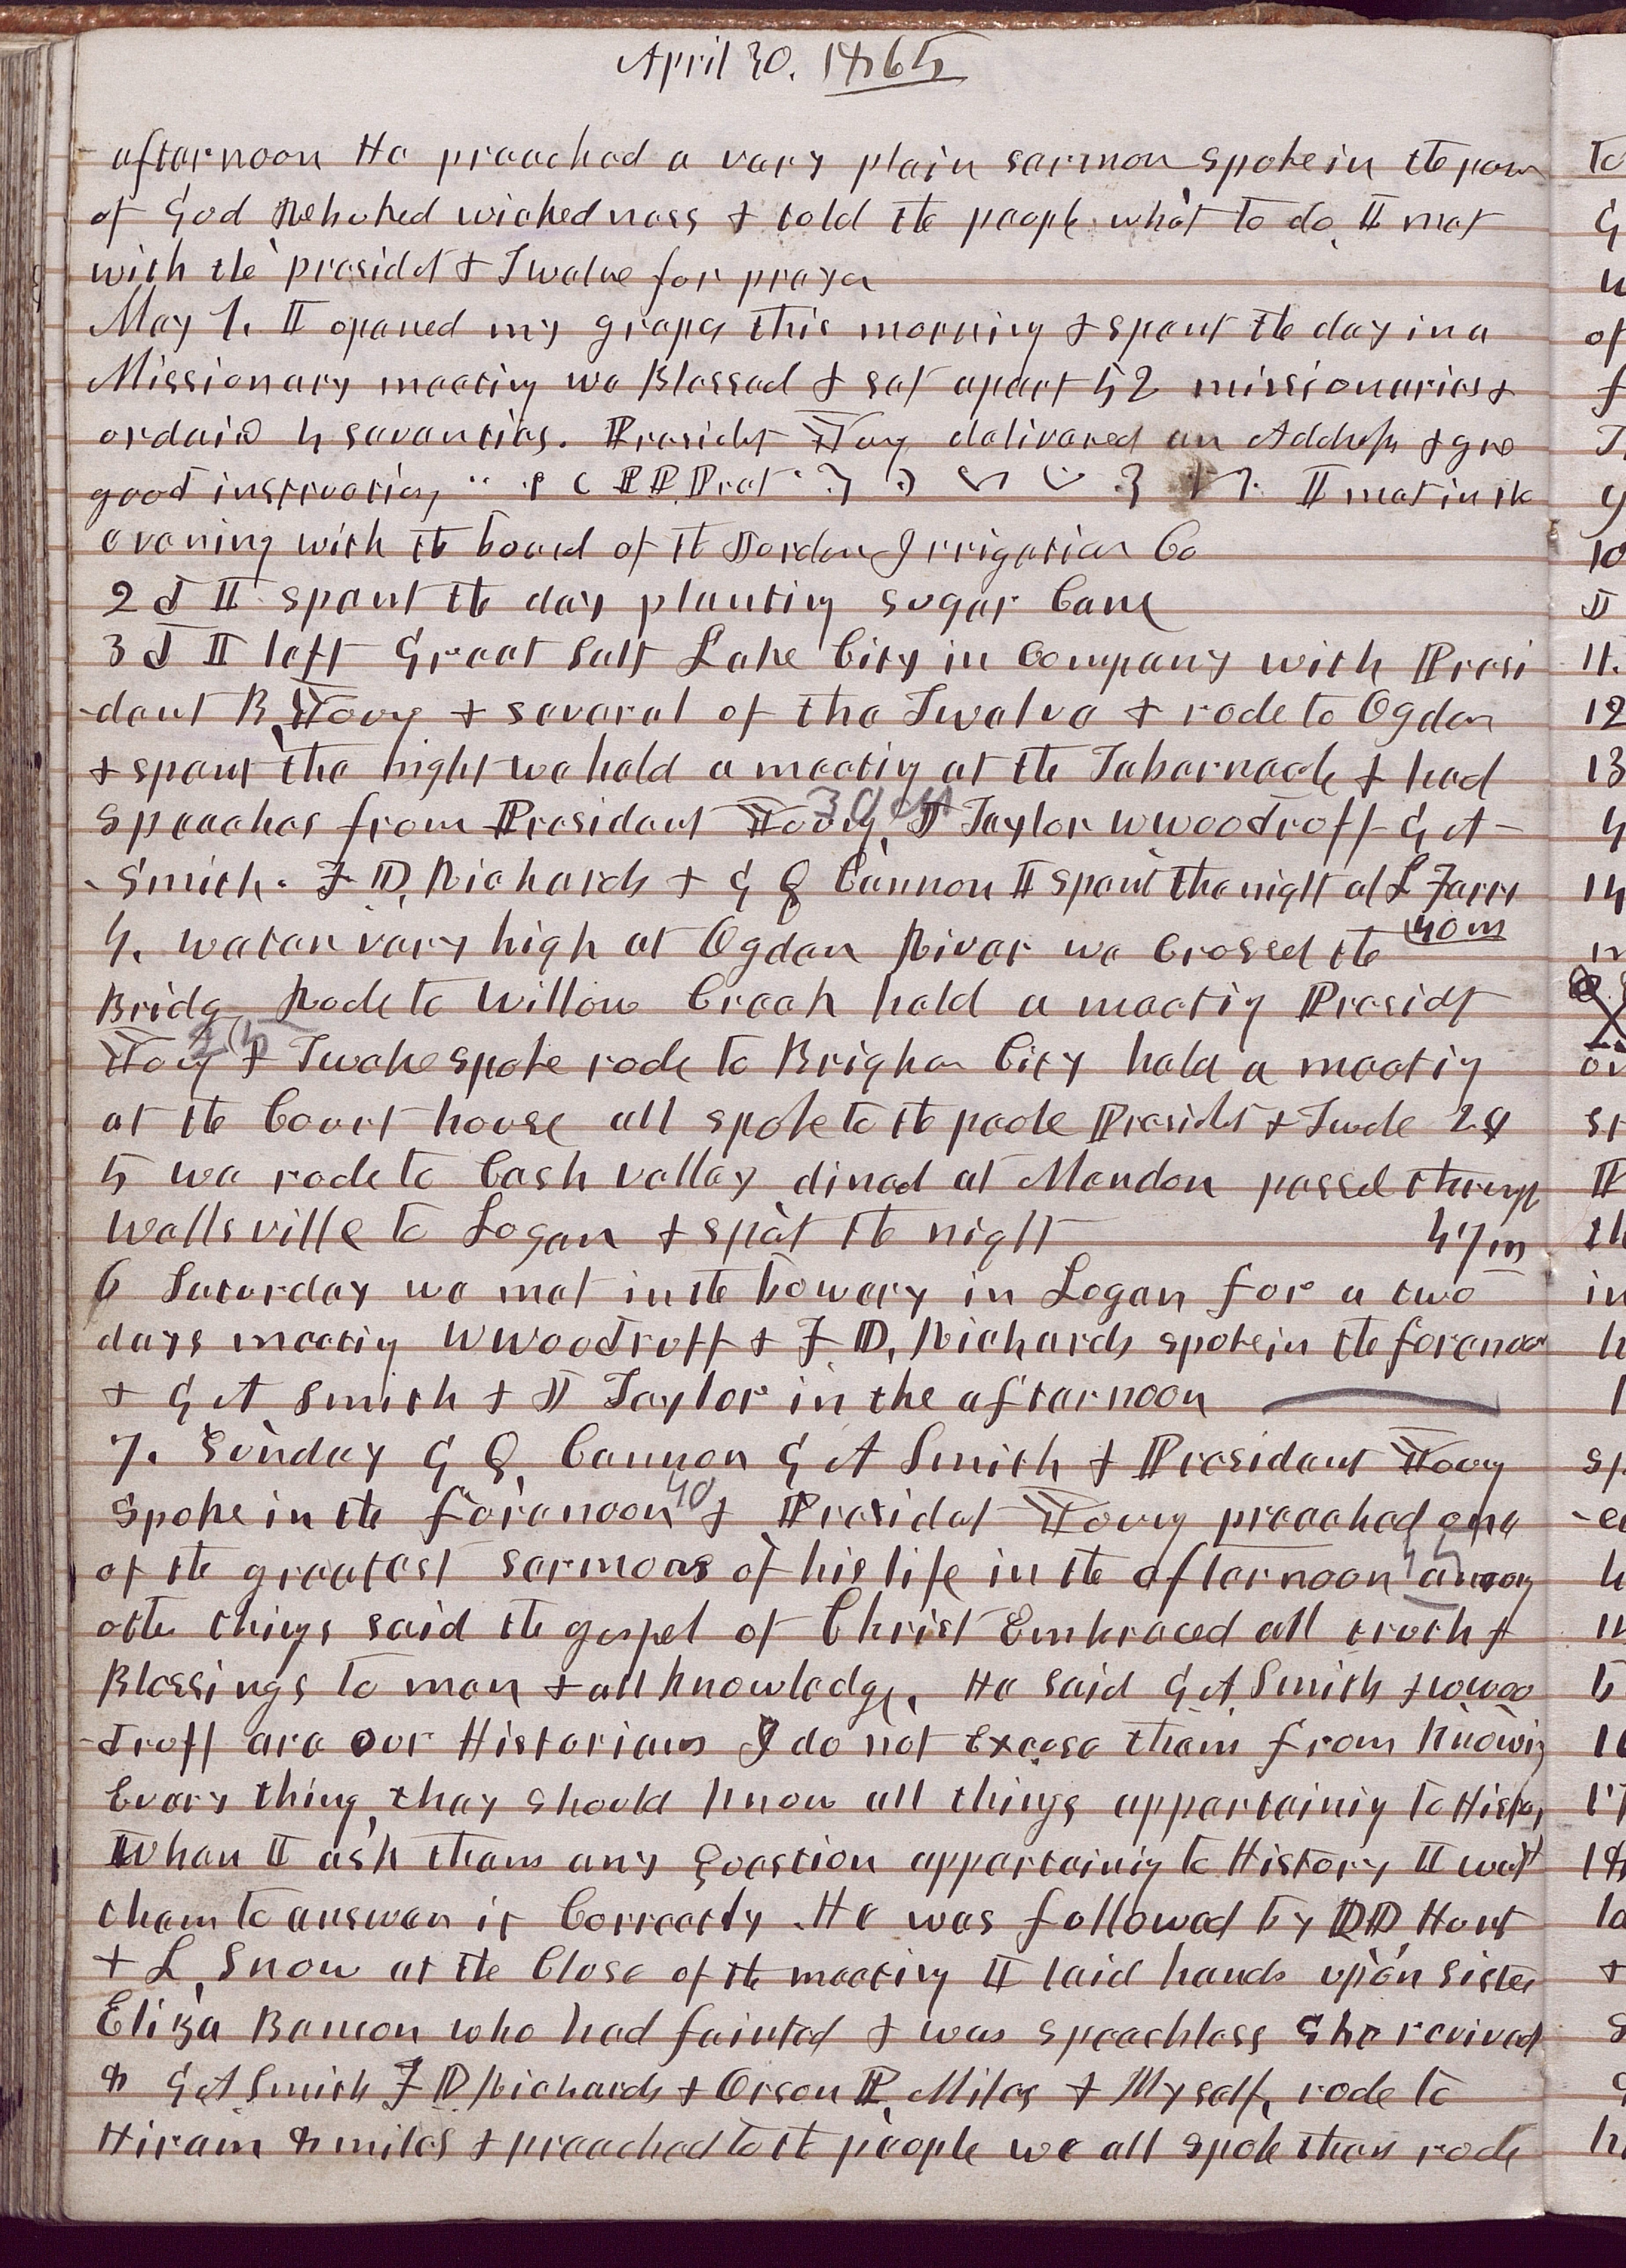 April 30. 1865
afternoon He preached a very plain sermon spoke in the pow
of God Rebuked wickedness & told the people what to do. I met
with the presidet & Twelve for prayer
May 1. I opened my grapes this morning & spent the day in a
Missionary meeting we Blessed & set apart 52 missionaries &
ordaind 4 seventies. President Young delivered an Address & gave
good instruction P P Prat I met in the
evening with the board of the Jordon Irrigation Co
2d I spent the day planting sugar Cane
3d I left Great Salt Lake City in Company with Presi
-dent B Young & several of the Twelve & rode to Ogden
& spent the night we held a meeting at the Tabernacle & had
speeches from President Young, J Taylor W Woodruff G A
Smith. F D, Richards & G Q Cannon I spent the night at L Farrs
4. water very high at Ogden River we Crossed the 40 m
Bridg Rode to Willow Creek held a meeting Presidt
Young & Twelve spoke rode to Brigham City held a meeting
at the Court house all spoke to the peole Presidet & Twele 24
5 we rode to Cash valley dined at Mendon passed through
Wellsville to Logan & spent the night
6 Saturday we met in the bowery in Logan for a two
days meeting W Woodruff & F D, Richards spoke in the forenoon
& G A Smith & J Taylor in the afternoon
7. Sunday G Q, Cannon G A Smith & President Young
Spoke in the forenoon 40 & Presidet Young preached one
of the greatest sermons of his life in the afternoon among
other things said the gospel of Christ Embraced all truth &
Blessings to man & all knowledge. He said G A Smith & W Woo
-druff are our Historians I do not Excuse them from knowing
Every thing they should know all things appertaining to History
When I ask them any Question appertaining to History I want
them to answer it Correctly. He was followed by D D Hunt
& L, Snow at the Close of the meeting I laid hands upon sister
Eliza Benson who had fainted & was speechless She revived
8 G A Smith F D Richards & Orson P, Miles & Myself, rode to
Hiram 8 miles & preached to the people we all spoke then rode